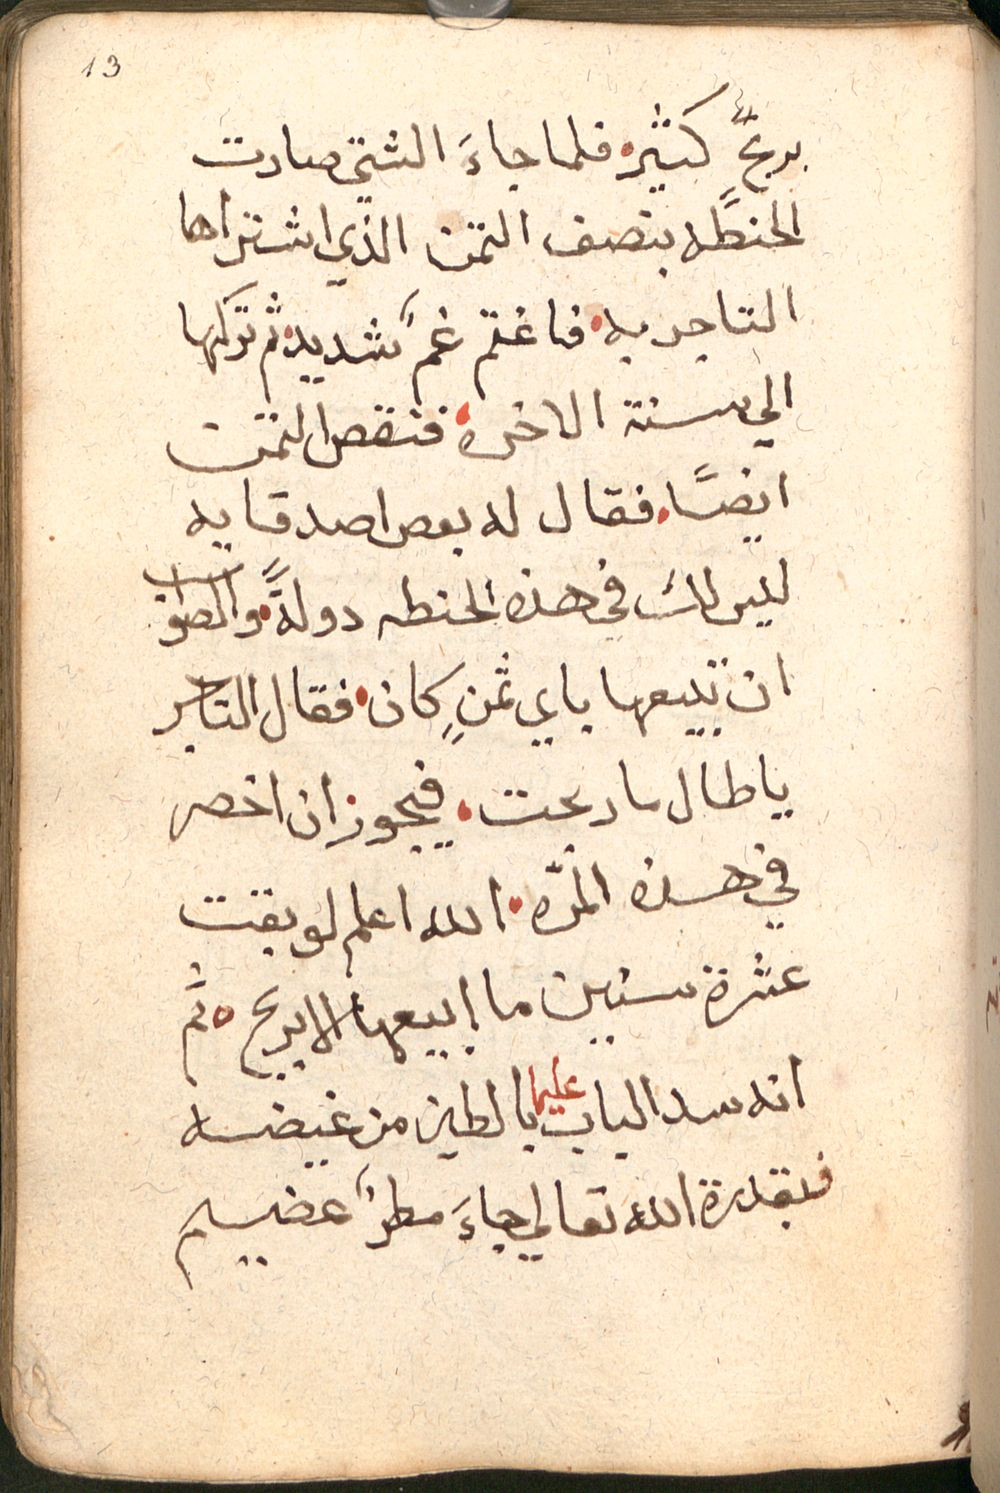 13
بربحٍ كثير. فلما جاءَ الشتي صارت
الحنطه بنصف الثمن الذي اشتراها
التاجر به. فاغتم غمً شديد. ثم تركها
الي سنة الاخره. فنقص الثمن
ايضًا. فقال له بعض اصدقايه
ليس لك في هذه الحنطه دولةً. والصواب
ان تبيعها باي ثمنٍ كان. فقال التاجر
ياطال ما ربحت. فيجوز ان اخصر
في هذه المرّه. الله اعلم لو بقت
عشرة سنين ما ابيعها الا بربح. ثم
انه سد الباب عليها بالطين من غيضه
فبقدرة الله تعالي جاءَ مطرً عضيم